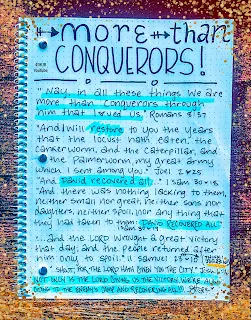 more than
CONQUERORS!
"Nay, in all these things we are
more than conquerors through
him that loved us." Romans 8:37
"And I will restore to you the years
that the locust hath eaten, the
cankerworm, and the caterpillar, and
the palmerworm, my great army
which I sent among you." Joel 2:25
"And David recovered all..." 1 Sam 30:18
"And there was nothing lacking to them,
neither small nor great, neither sons nor
daughters, neither spoil, nor any thing that
they had taken to them: DAVID RECOVERED ALL."
1 Sam 30:19
"...and the LORD wrought a great victory
that day; and the people returned after
him only to spoil." II Samuel 23:10
"Shout; FOR THE LORD HATH GIVEN YOU THE CITY."
NOT ONLY IS THE LORD GIVING US THE VICTORY, WE'RE ALSO
GOING TO THE ENEMY'S CAMP AND RECOVERING ALL!